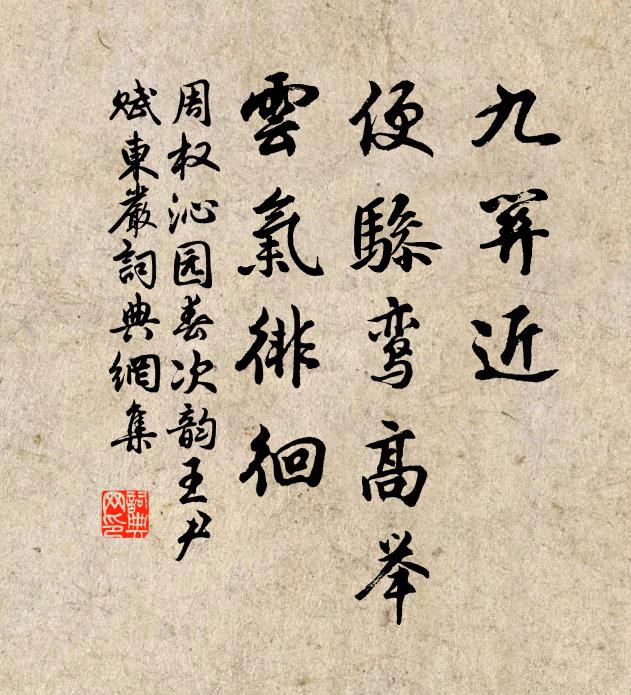 九霄近
便驂鸾高举
雲氣徘徊
周权沁园春次韵王尹
赋東巖詞典網集
詞典
网印